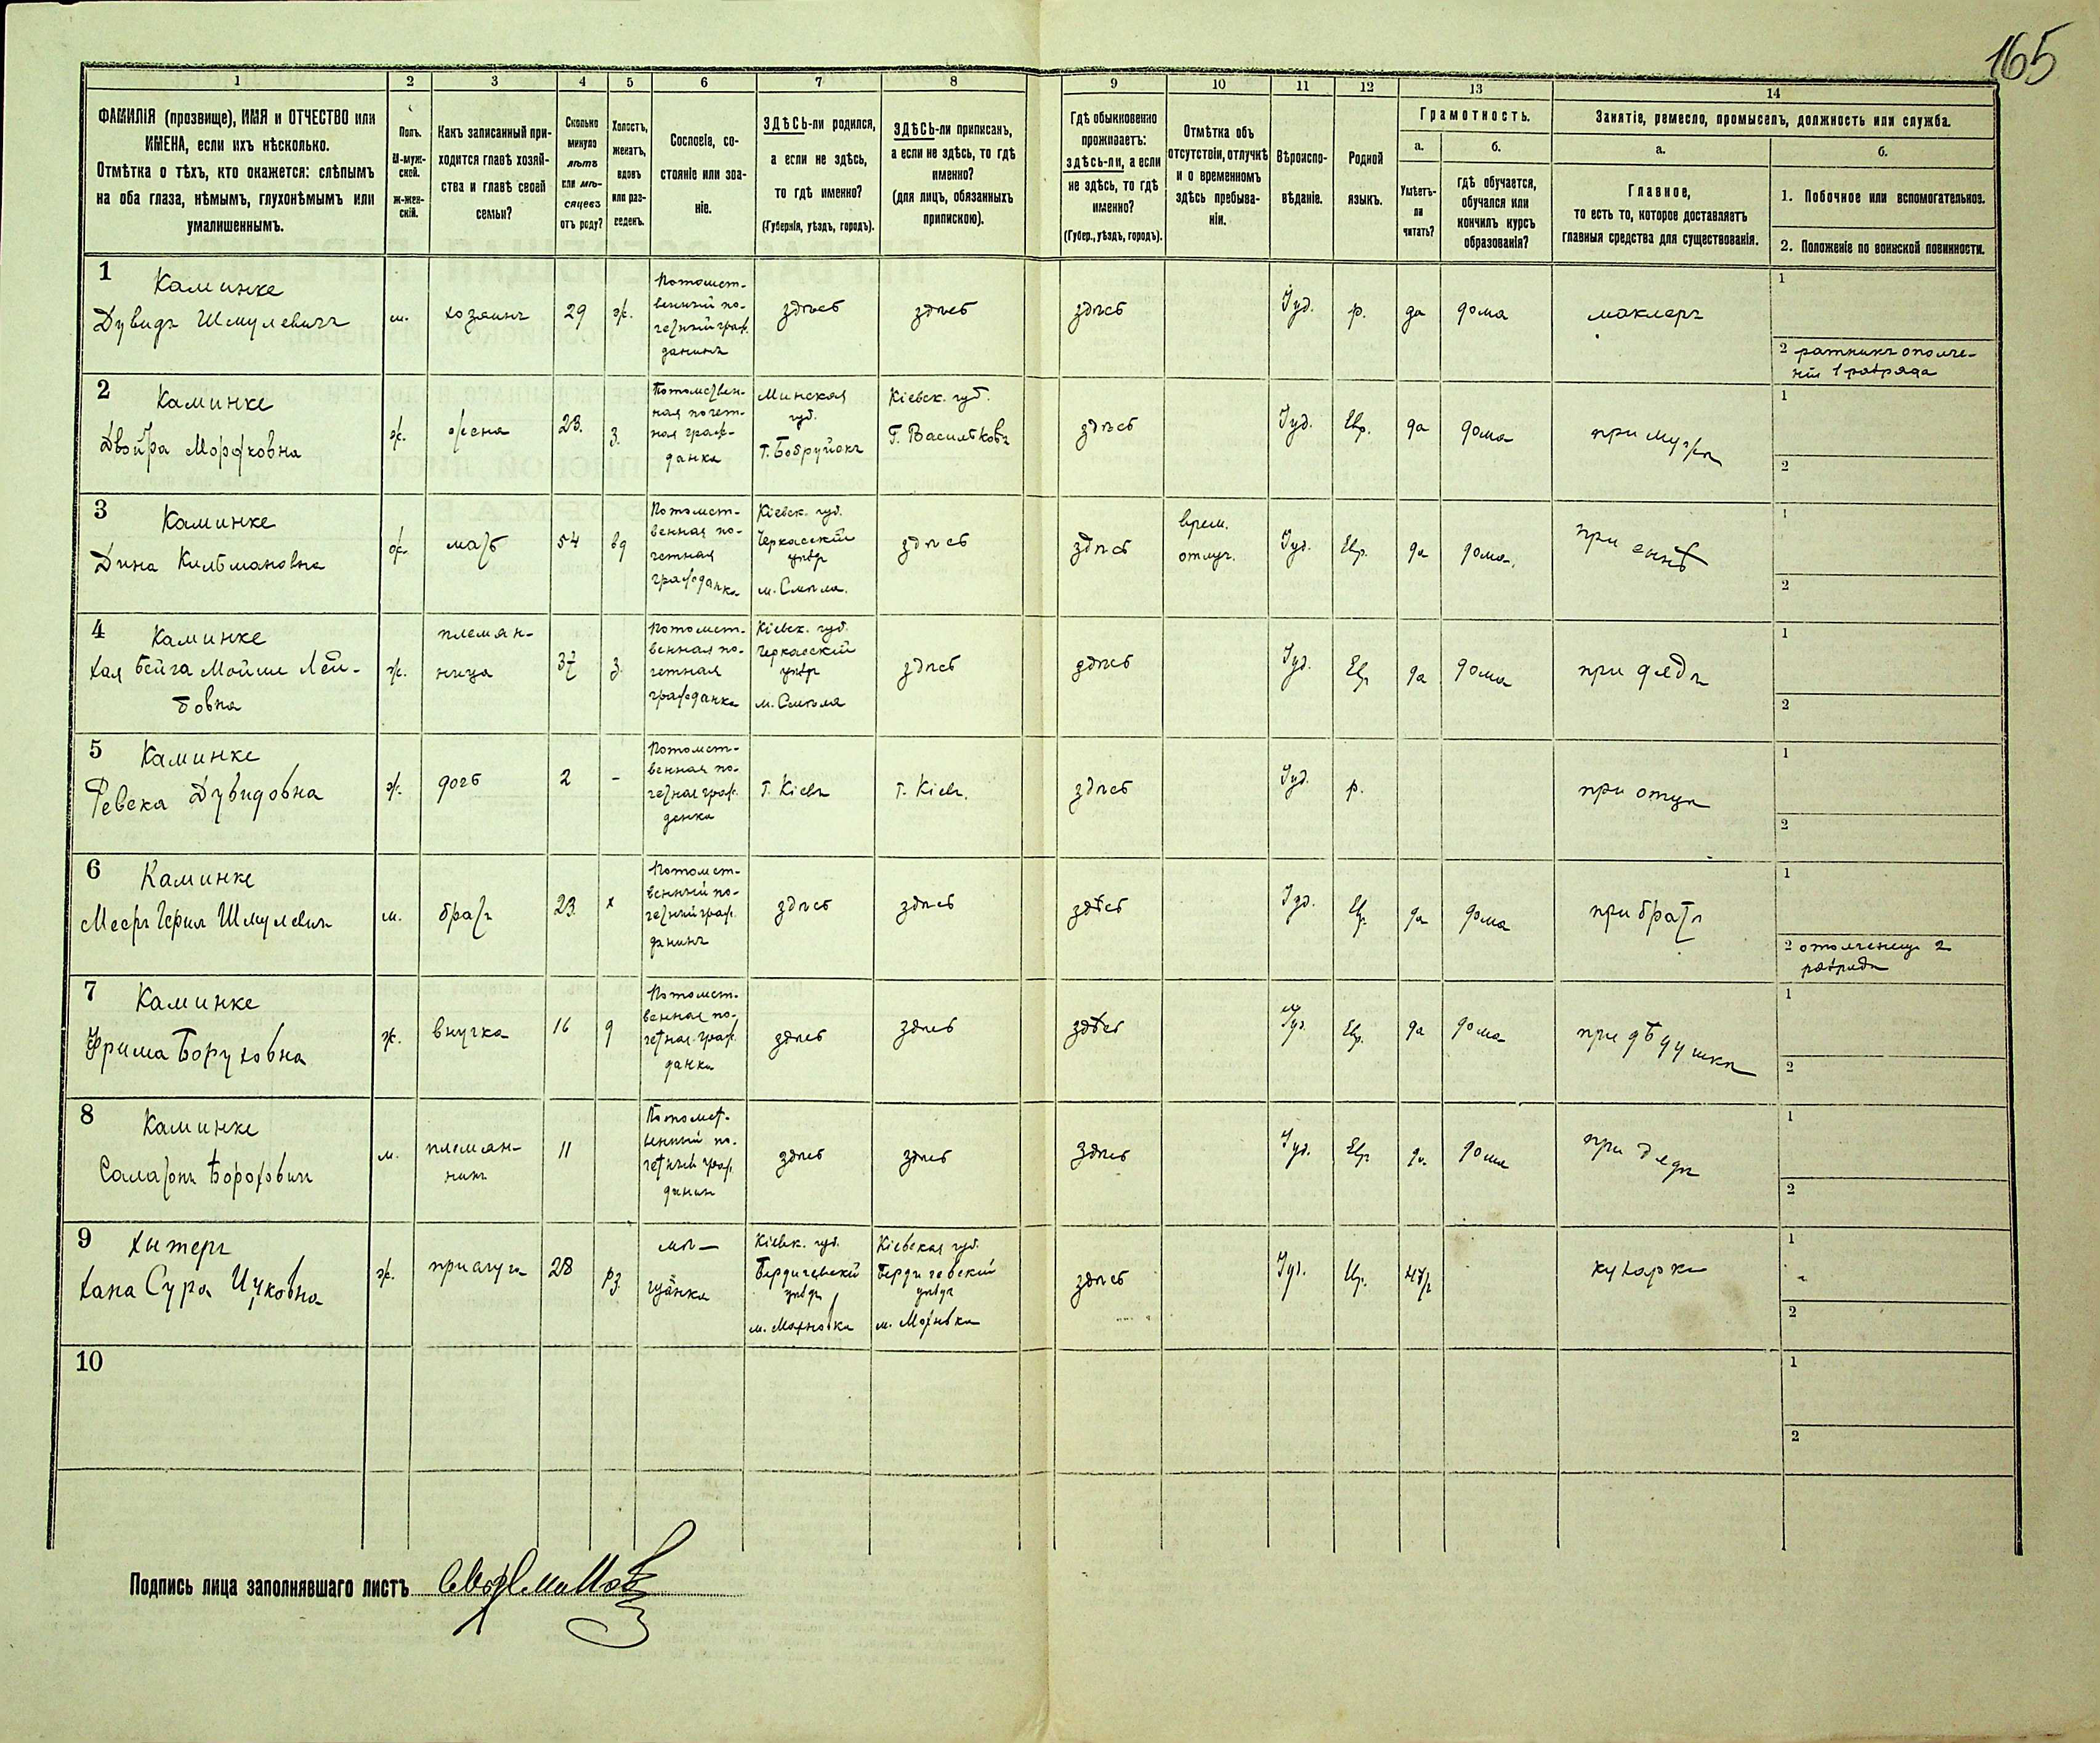 165
1 2 3 4 5 6 7 8 9 10 11 12 13 14
ФАМИЛІЯ (прозвище), ИМЯ и ОТЧЕСТВО или
ИМЕНА, если ихъ нѣсколько.
Отмѣтка о тѣхъ, кто окажется: слѣпымъ
на оба глаза, нѣмымъ, глухонѣмымъ или
умалишеннымъ.
Полъ.
М-муж-
ской.
Ж-жен-
скій.
Какъ записанный при-
ходится главѣ хозяй-
ства и главѣ своей
семьи?
Сколько
минуло
лѣтъ
или мѣ-
сяцевъ
отъ роду?
Холостъ,
женатъ,
вдовъ
или раз-
веденъ.
Сословіе, со-
стояніе или зва-
ніе.
ЗДѢСЬ-ли родился,
а если не здѣсь,
то гдѣ именно?
(Губернія, уѣздъ, городъ).
ЗДѢСЬ-ли приписанъ,
а если не здѣсь, то гдѣ
именно?
(для лицъ, обязанныхъ
припискою).
Гдѣ обыкновенно
проживаетъ:
здѣсь-ли, а если
не здѣсь, то гдѣ
именно?
(Губер., уѣздъ, городъ).
Отмѣтка объ
отсутствіи, отлучкѣ
и о временномъ
здѣсь пребыва-
ніи.
Вѣроиспо-
вѣданіе.
Родной
языкъ.
Грамотность.
а.
Умѣетъ-
ли
читать?
б.
гдѣ обучается,
обучался или
кончилъ курсъ
образованія?
Занятіе, ремесло, промыселъ, должность или служба.
а.
Главное,
то есть то, которое доставляетъ
главныя средства для существованія.
б.
1. Побочное или вспомогательное.
2. Положеніе по воинской повинности.
1
Каминке
Дувидъ Шмулевичъ
м.
хозяинъ
29
ж.
Потомст-
венный по-
четный граж-
данинъ
здѣсь
здѣсь
здѣсь
Іуд.
р.
да
дома
маклеръ
1
2 ратникъ ополче-
нія 1 разряда
2
Каминке
Двойра Мордковна
ж.
жена
23.
з.
Потомствен-
ная почет-
ная граж-
данка
Минская
губ.
г. Бобруйскъ
Кіевск. губ.
г. Васильковъ
здѣсь
Іуд.
Евр.
да
дома
при мужѣ
1
2
3
Каминке
Дина Кильмановна
ж.
мать
54
вд
Потомст-
венная по-
четная
гражданка
Кіевск. губ.
Черкасский
уѣздъ
м. Смѣла.
здѣсь
здѣсь
врем.
отлуч.
Іуд.
Евр.
да
дома.
при сынѣ
1
2
4
Каминке
Хая Бейга Мойши Лей-
бовна
ж.
племян-
ница
37
з.
Потомст-
венная по-
четная
гражданка
Кіевск. губ.
Черкасский
уѣздъ
м. Смѣла
здѣсь
здѣсь
Іуд.
Евр
да
дома
при дядѣ
1
2
5
Каминке
Ревека Дувидовна
ж.
дочь
2
-
Потомст-
венная по-
четная граж-
данка
г. Кіевъ
г. Кіевъ.
здѣсь
Іуд.
р.
при отцѣ
1
2
6
Каминке
Шмулевичъ
м.
братъ
23
х
Потомст-
венный по-
четный граж-
данинъ
здѣсь
здѣсь
здѣсь
Іуд.
Евр.
да
дома
при братѣ
1
2 ополченец 2
разряда
7
Каминке
Фрима Боруховна
ж.
внучка
16
д
Потомст-
венная по-
четная граж-
данка
здѣсь
здѣсь
здѣсь
Іуд.
Евр.
да
дома
при дѣдушкѣ
1
2
8
Каминке
м.
племян-
никъ
11
Потомст-
венный по-
четный граж-
данин
здѣсь
здѣсь
здѣсь
Іуд.
Евр
да
дома
при дядѣ
1
2
9
Хана Сура Ицковна
ж.
прислуга
28
рз
мѣ-
щанка
Кіевск. губ.
Бердичевскій
уѣздъ
м. Махновка
Кіевская губ.
Бердичевскій
уѣздъ
м. Махновка
здѣсь
Іуд.
нѣт
кухарка
1
2
10
1
2
Подпись лица заполнявшаго листъ